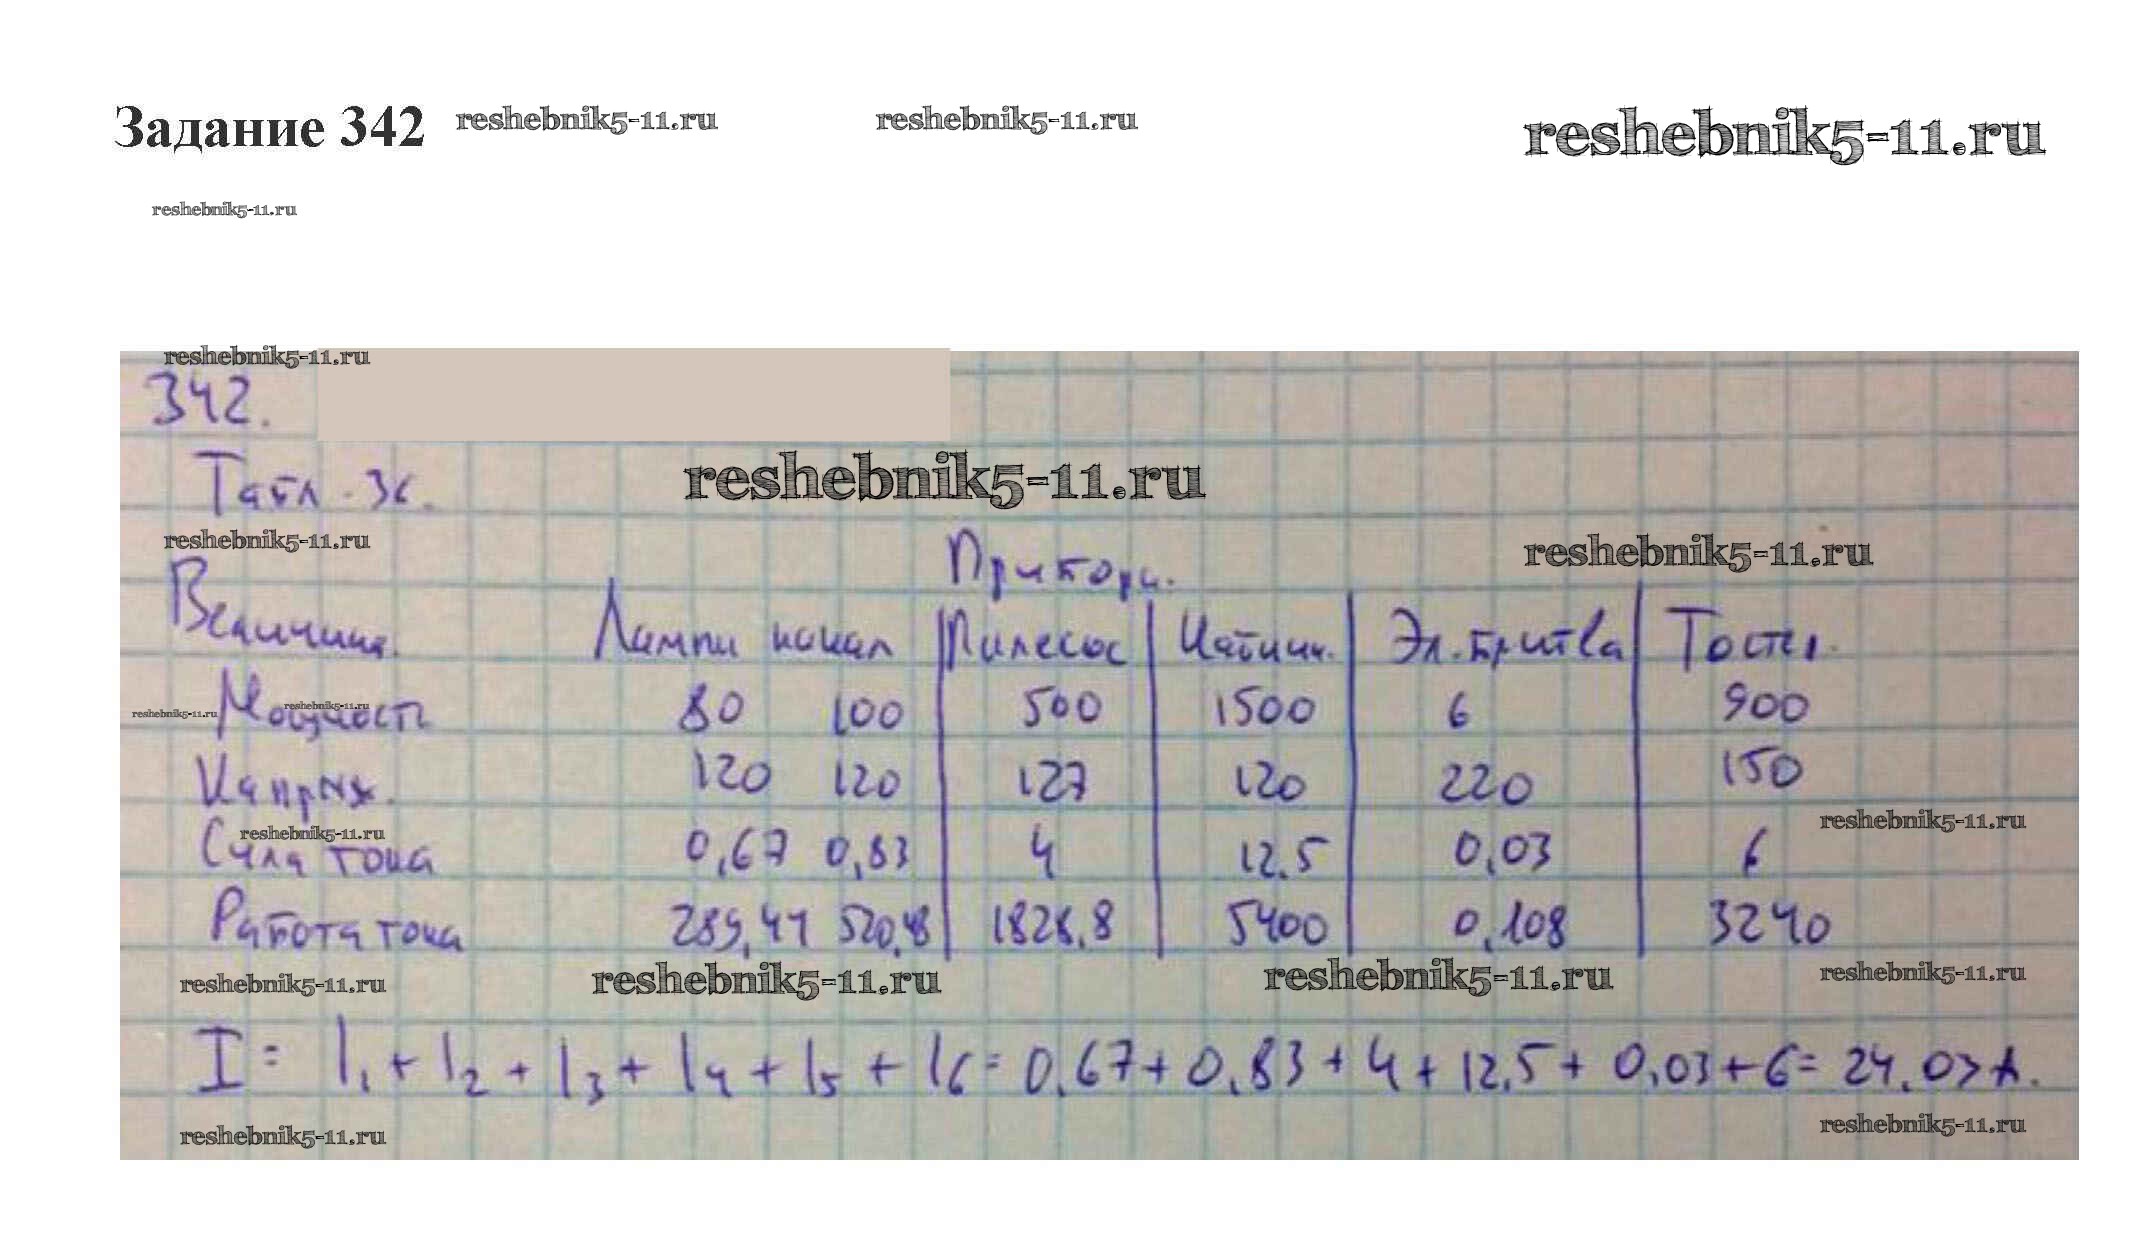 Задание 342 reshebnik5-11.ru reshebnik5-11.ru reshebnik5-11.ru
reshebnik5-11.ru
reshebnik5-11.ru
342.
Табл. 36.
reshebnik5-11.ru
reshebnik5-11.ru
Приборы.
reshebnik5-11.ru
Величина. Лампы накал Пылесос Эл. бритва
reshebnik5-11.ru reshebnik5-11.ru
Мощность 80 100 500 1500 6 900
Напряж. 120 120 127 120 220 150
reshebnik5-11.ru reshebnik5-11.ru
Сила тока 0,67 0,83 4 12,5 0,03 6
Работа тока 289,44 520,48 1828,8 5400 0,108 3240
reshebnik5-11.ru reshebnik5-11.ru reshebnik5-11.ru reshebnik5-11.ru
I = I1 + I2 + I3 + I4 + I5 + I6 = 0,67 + 0,83 + 4 + 12,5 + 0,03 + 6 = 24,03 A.
reshebnik5-11.ru reshebnik5-11.ru